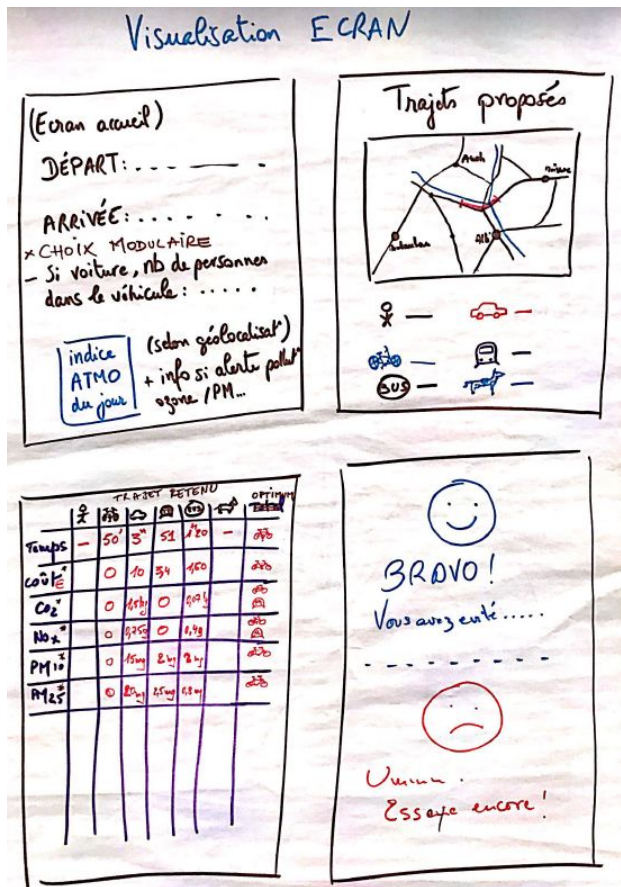 Visualisation ECRAN
(Ecran accueil)
DÉPART: . . . . — —
ARRIVÉE: . . . . . . .
× CHOIX MODULAIRE
– Si voiture, nb de personnes
dans le véhicule: . . . . .
indice
ATMO
du jour
(selon géolocalisat°)
+ info si alerte pollut°
ozone / PM...
Trajets proposés
Auch
Albi
BUS
TRAJET RETENU
OPTIMUM
BUS
Temps – 50' 51 1h20 –
coût € 0 10 34 1,60
CO2 0 0
NOx 0 0 0,4g
PM10 0 15mg 2mg
PM2.5 0
BRAVO!
Vous avez évité.....
Ummm.
Essaye encore!